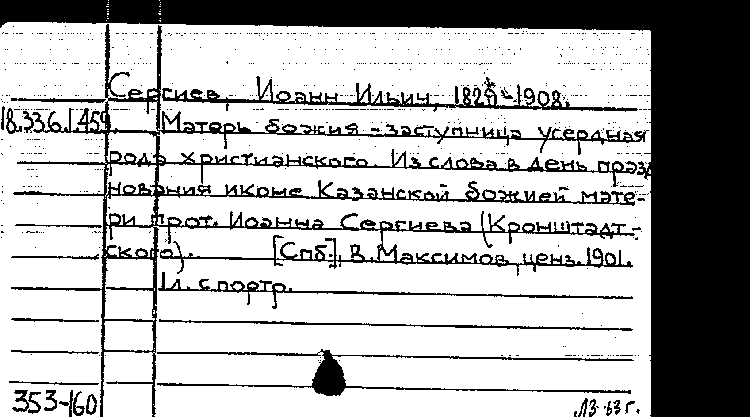 Сергиев, Иоанн Ильич, 1829-1908.
18.336.1.459. Матерь божия - заступница усердная
рода христианского. Из слова в день празд
нования иконе Казанской божией мате-
ри прот. Иоанна Сергиева (Кронштадт-
ского). [Спб.], В. Максимов, ценз. 1901.
1 л. с портр.
353-160 ЛЗ-63 г.